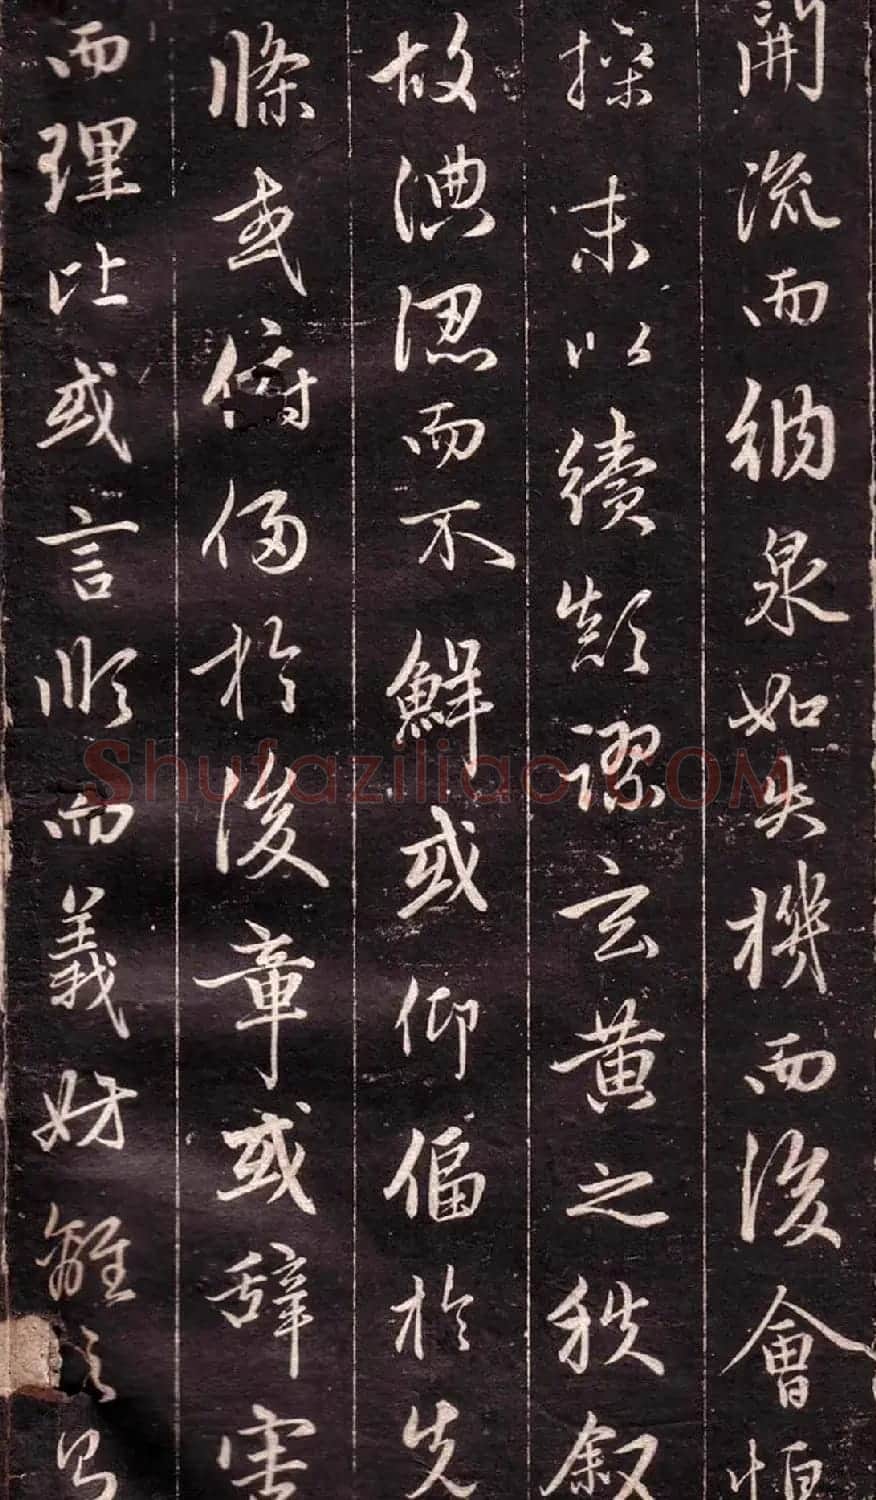 開流而納泉如失機而後會恒
操末以續顛謬玄黃之秩叙
故淟涊而不鮮或仰偪於先
條或俯侵於後章或辭害
而理比或言順而義妨離之則
Shufaziliao.COM